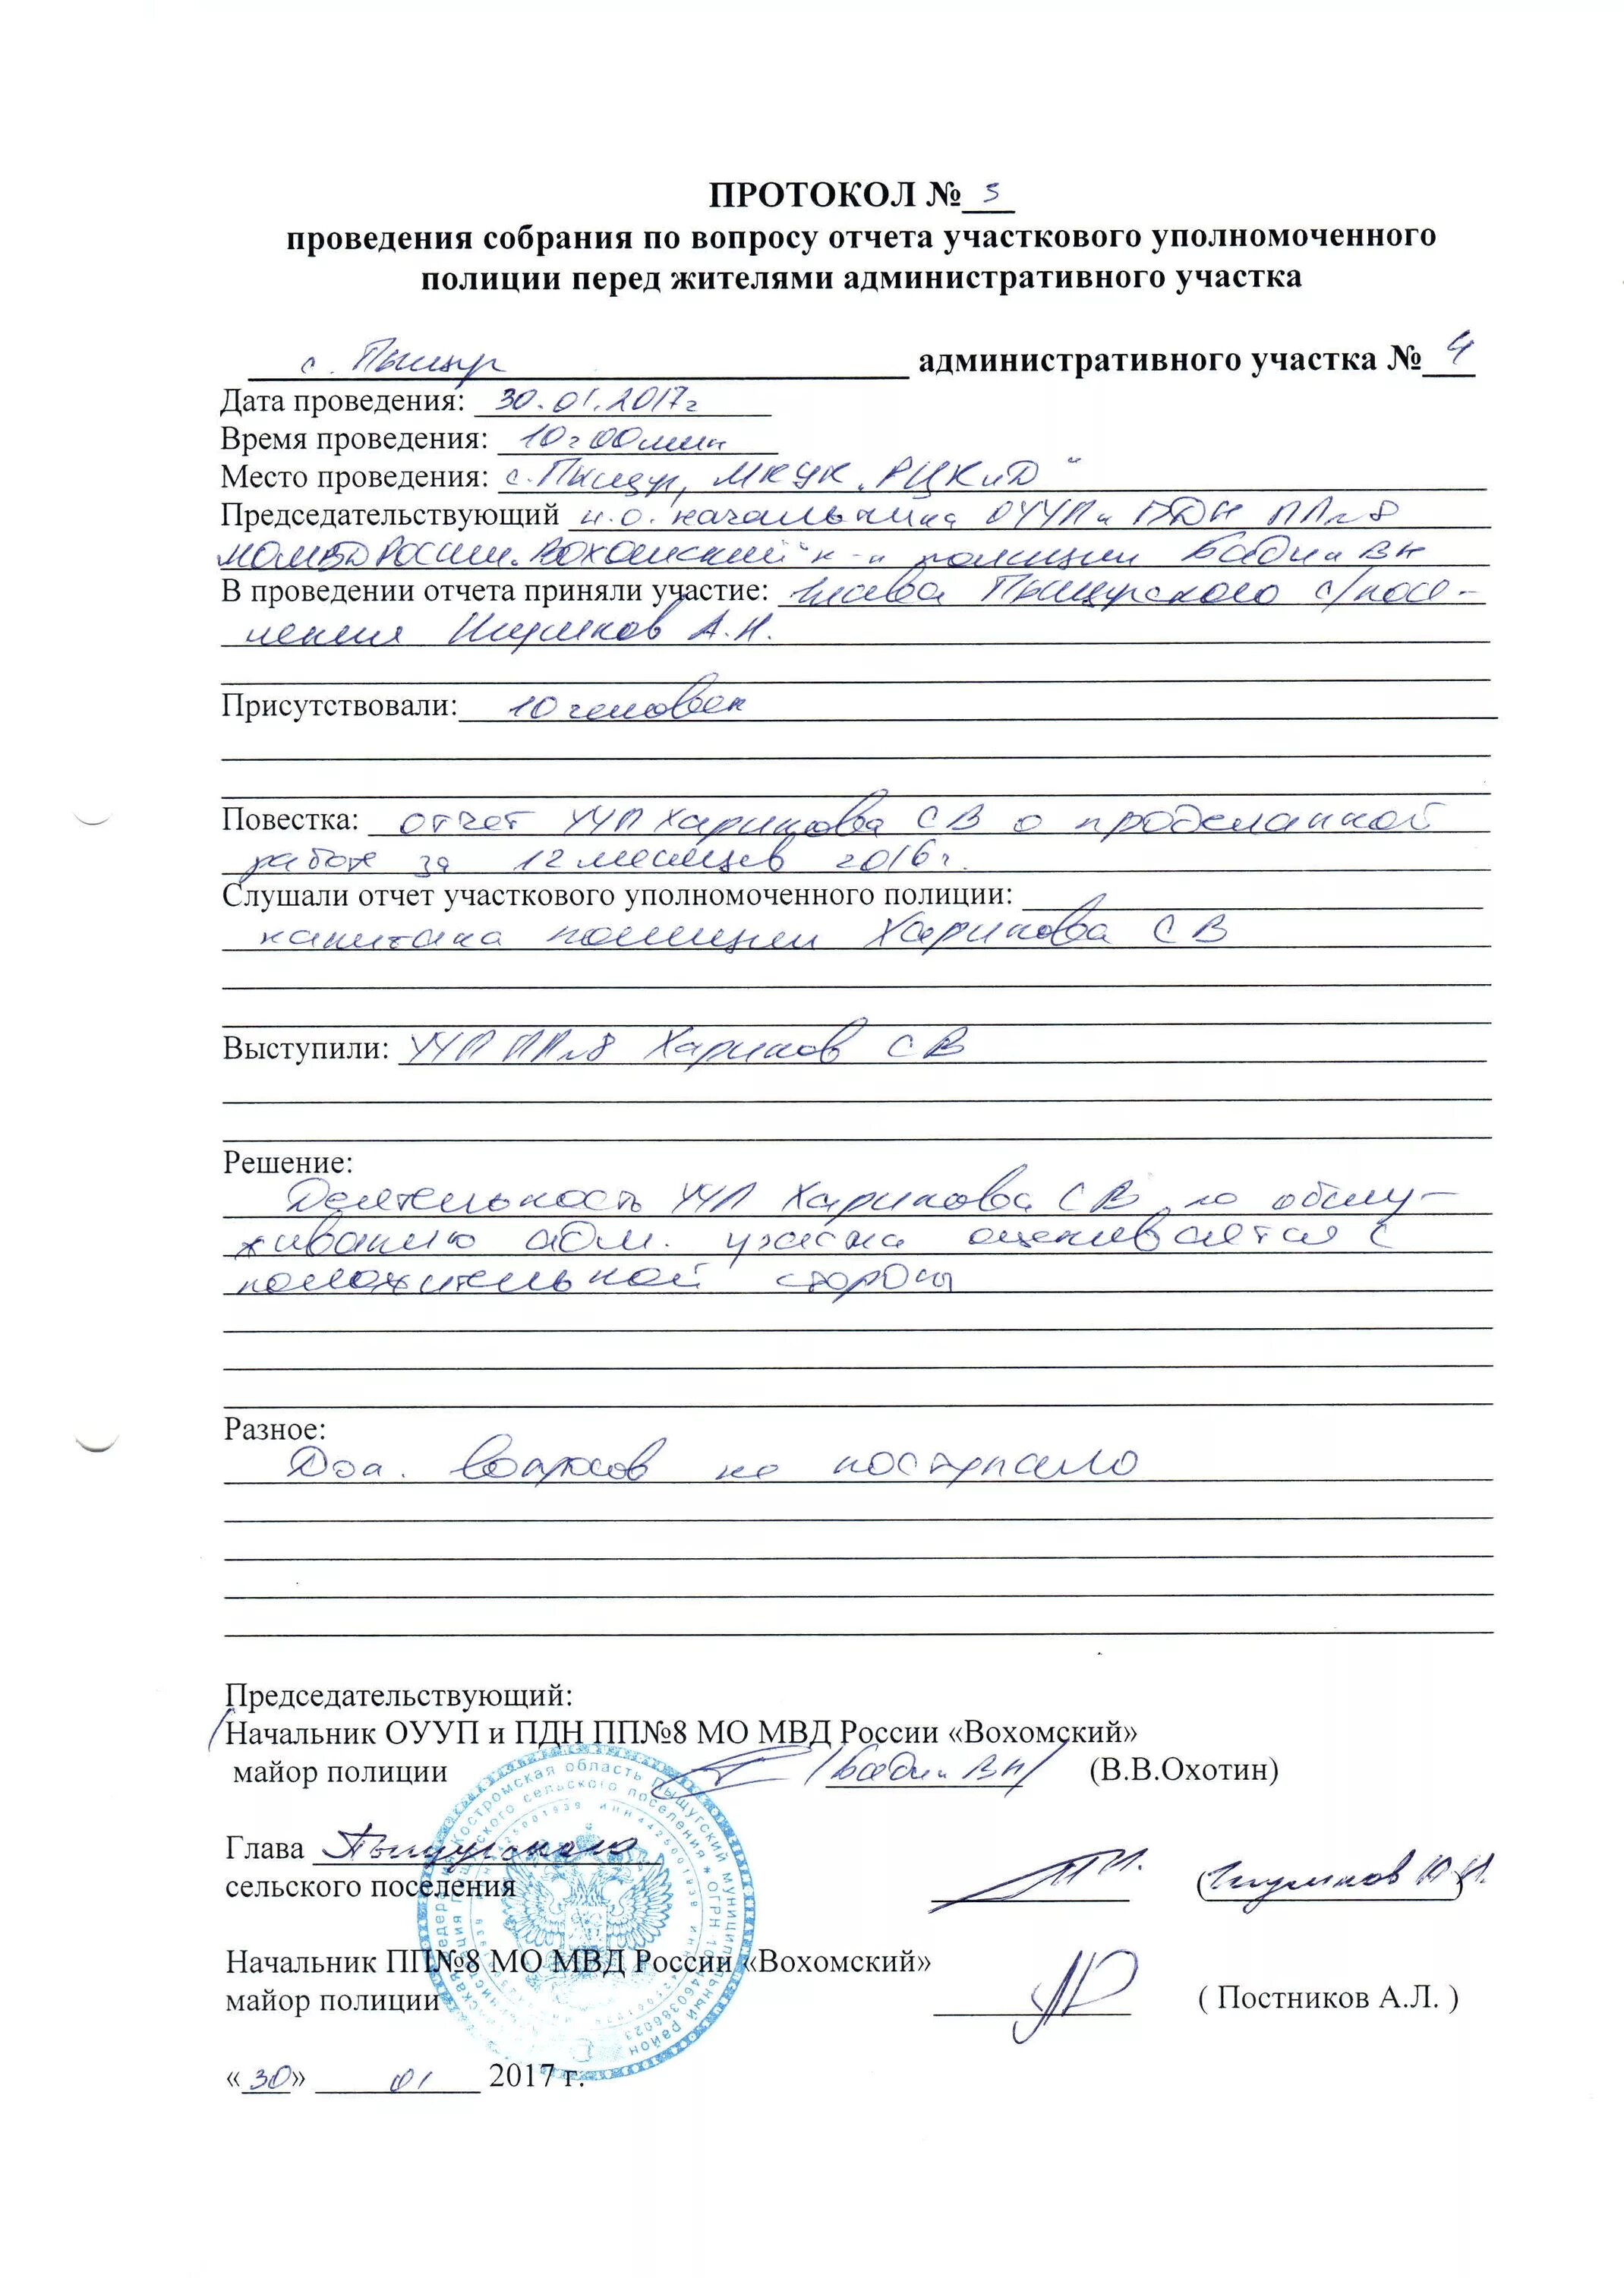 ПРОТОКОЛ № 3
проведения собрания по вопросу отчета участкового уполномоченного
полиции перед жителями административного участка
с. Пыщуг административного участка № 4
Дата проведения: 30.01.2017г
Время проведения: 10ч00мин
Место проведения: с. Пыщуг, МКУК „РЦКиД"
Председательствующий и.о. начальника ОУУП и ПДН ПП№8
МО МВД России „Вохомский" к-н полиции Бадьин ВН
В проведении отчета приняли участие: глава Пыщугского с/посе-
ления
Присутствовали: 10 человек
Повестка: отчет УУП Харинова СВ о проделанной
работе за 12 месяцев 2016г.
Слушали отчет участкового уполномоченного полиции:
капитана полиции Харинова СВ
Выступили: УУП ПП№8 Харинов СВ
Решение:
Деятельность УУП Харинова СВ по обслу-
живанию адм. участка оценивается с
положительной стороны
Разное:
Доп. вопросов не поступало
Председательствующий:
Начальник ОУУП и ПДН ПП№8 МО МВД России «Вохомский»
майор полиции /Бадьин ВН/ (В.В.Охотин)
Глава Пыщугского
сельского поселения
Начальник ПП№8 МО МВД России «Вохомский»
майор полиции ( Постников А.Л. )
«30» 01 2017 г.
Костромская область Пыщугский муниципальный район
сельского поселения * ОГРН